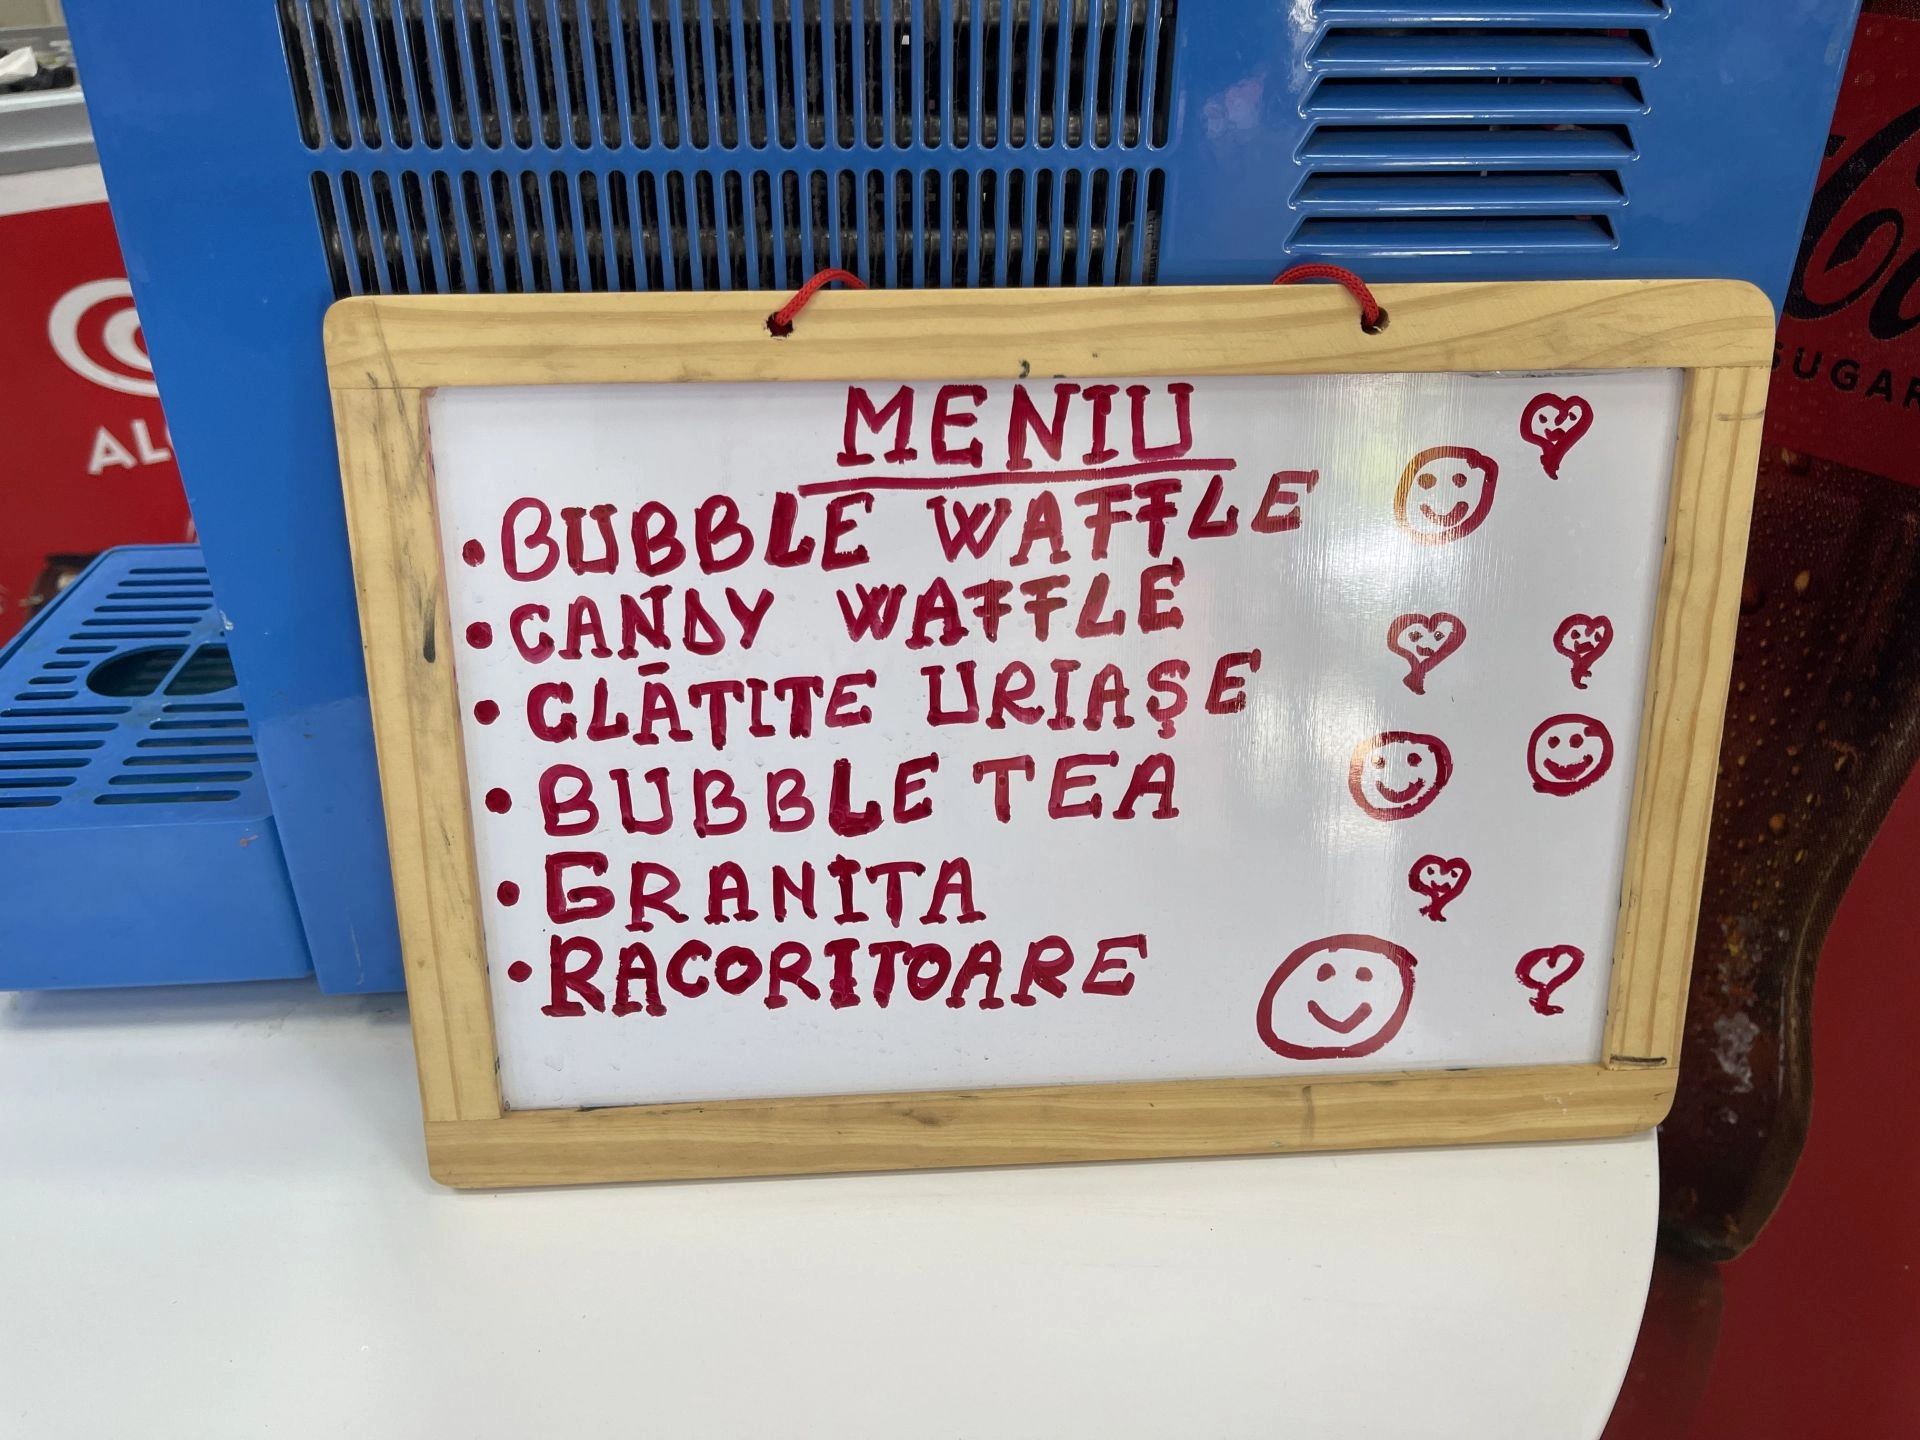 MENIU
• BUBBLE WAFFLE
• CANDY WAFFLE
• CLĀTITE URIAȘE
• BUBBLE TEA
• GRANITA
• RACORITOARE
AL
SUGAR